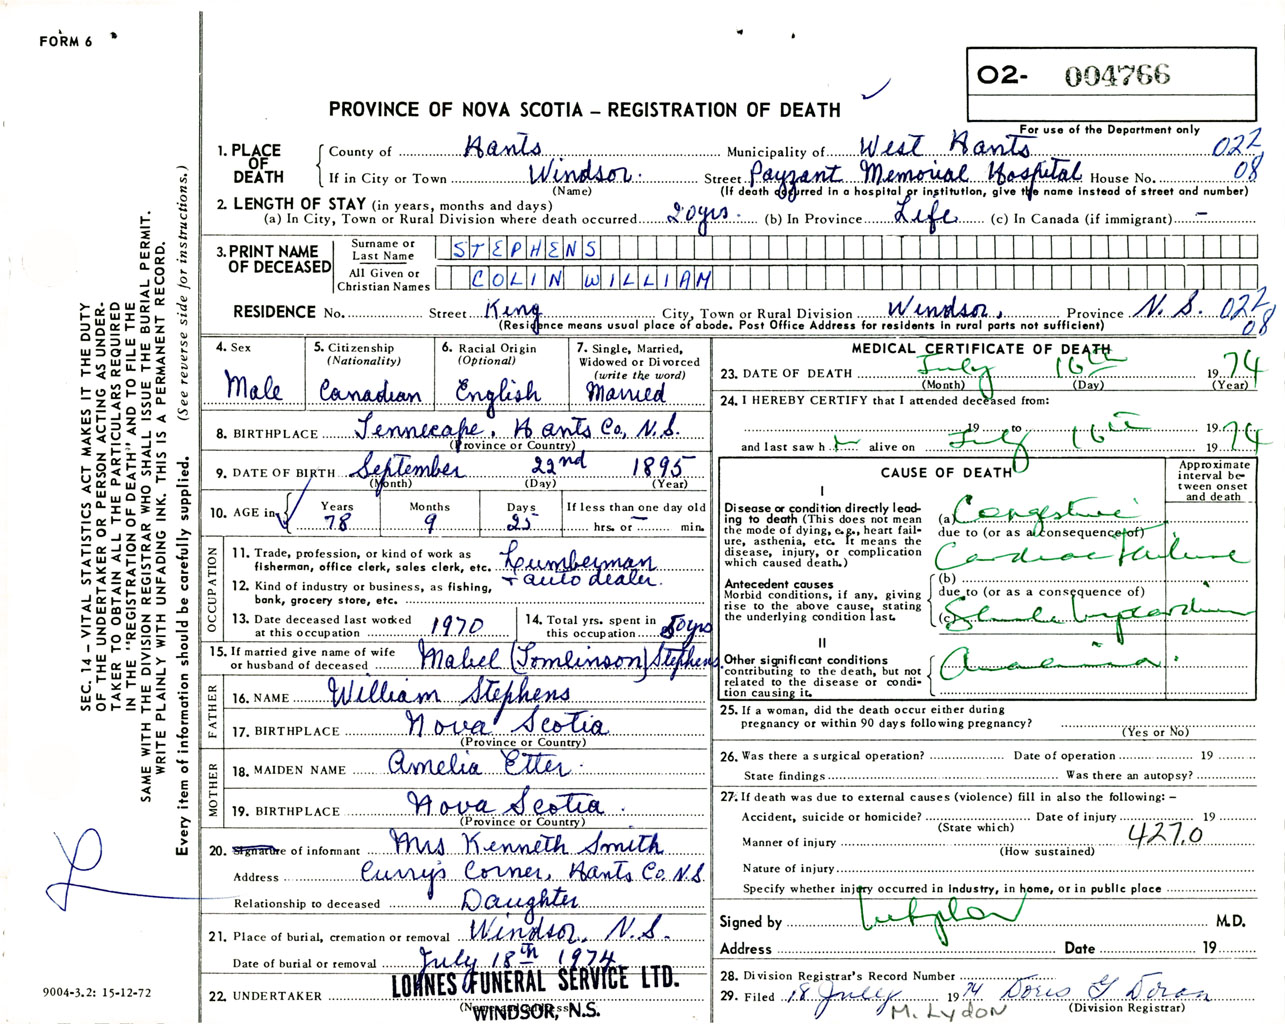 FORM 6
O2- 004766
PROVINCE OF NOVA SCOTIA – REGISTRATION OF DEATH
For use of the Department only
1. PLACE OF DEATH
County of Hants Municipality of West Hants 022
If in City or Town Windsor. Street Payzant Memorial Hospital House No. 08
(Name) (If death occurred in a hospital or institution, give the name instead of street and number)
2. LENGTH OF STAY (in years, months and days)
(a) In City, Town or Rural Division where death occurred 20yrs. (b) In Province Life (c) In Canada (if immigrant) –
3. PRINT NAME OF DECEASED
Surname or Last Name STEPHENS
All Given or Christian Names COLIN WILLIAM
RESIDENCE No. Street King City, Town or Rural Division Windsor, Province N.S. 022
(Residence means usual place of abode. Post Office Address for residents in rural parts not sufficient) 08
4. Sex
Male
5. Citizenship
(Nationality)
Canadian
6. Racial Origin
(Optional)
English
7. Single, Married,
Widowed or Divorced
(write the word)
Married
8. BIRTHPLACE Tennecape, Hants Co, N.S.
(Province or Country)
9. DATE OF BIRTH September 22nd 1895
(Month) (Day) (Year)
10. AGE in
Years Months Days If less than one day old
78 9 25 hrs. or – min.
OCCUPATION
11. Trade, profession, or kind of work as
fisherman, office clerk, sales clerk, etc. Lumberman
+ auto dealer.
12. Kind of industry or business, as fishing,
bank, grocery store, etc.
13. Date deceased last worked
at this occupation 1970
14. Total yrs. spent in
this occupation 50yrs
15. If married give name of wife
or husband of deceased Mabel (Tomlinson) Stephens
FATHER
16. NAME William Stephens
17. BIRTHPLACE Nova Scotia
(Province or Country)
MOTHER
18. MAIDEN NAME Amelia Etter.
19. BIRTHPLACE Nova Scotia.
(Province or Country)
20. Signature of informant Mrs Kenneth Smith
Address Curry's Corner, Hants Co N.S
Relationship to deceased Daughter
21. Place of burial, cremation or removal Windsor, N.S.
Date of burial or removal July 18th 1974
22. UNDERTAKER LOHNES FUNERAL SERVICE LTD.
WINDSOR, N.S.
MEDICAL CERTIFICATE OF DEATH
23. DATE OF DEATH July 16th 1974
(Month) (Day) (Year)
24. I HEREBY CERTIFY that I attended deceased from:
19 to 1974
and last saw h alive on July 16th 1974
CAUSE OF DEATH
Approximate
interval be-
tween onset
and death
I
Disease or condition directly lead-
ing to death (This does not mean
the mode of dying, e.g., heart fail-
ure, asthenia, etc. It means the
disease, injury, or complication
which caused death.)
(a) Congestive
due to (or as a consequence of)
Cardiac Failure
Antecedent causes
Morbid conditions, if any, giving
rise to the above cause, stating
the underlying condition last.
(b)
due to (or as a consequence of)
(c)
II
Other significant conditions
contributing to the death, but not
related to the disease or condi-
tion causing it.
25. If a woman, did the death occur either during
pregnancy or within 90 days following pregnancy?
(Yes or No)
26. Was there a surgical operation? Date of operation 19
State findings Was there an autopsy?
27. If death was due to external causes (violence) fill in also the following: –
Accident, suicide or homicide? Date of injury 19
(State which)
Manner of injury 427.0
(How sustained)
Nature of injury
Specify whether injury occurred in Industry, in home, or in public place
Signed by M.D.
Address Date 19
28. Division Registrar's Record Number
29. Filed 18 July 1974 Doris G Doran
(Division Registrar)
M. Lydon
SEC. 14 – VITAL STATISTICS ACT MAKES IT THE DUTY
OF THE UNDERTAKER OR PERSON ACTING AS UNDER-
TAKER TO OBTAIN ALL THE PARTICULARS REQUIRED
IN THE "REGISTRATION OF DEATH" AND TO FILE THE
SAME WITH THE DIVISION REGISTRAR WHO SHALL ISSUE THE BURIAL PERMIT.
WRITE PLAINLY WITH UNFADING INK. THIS IS A PERMANENT RECORD.
Every item of information should be carefully supplied. (See reverse side for instructions.)
9004-3.2: 15-12-72